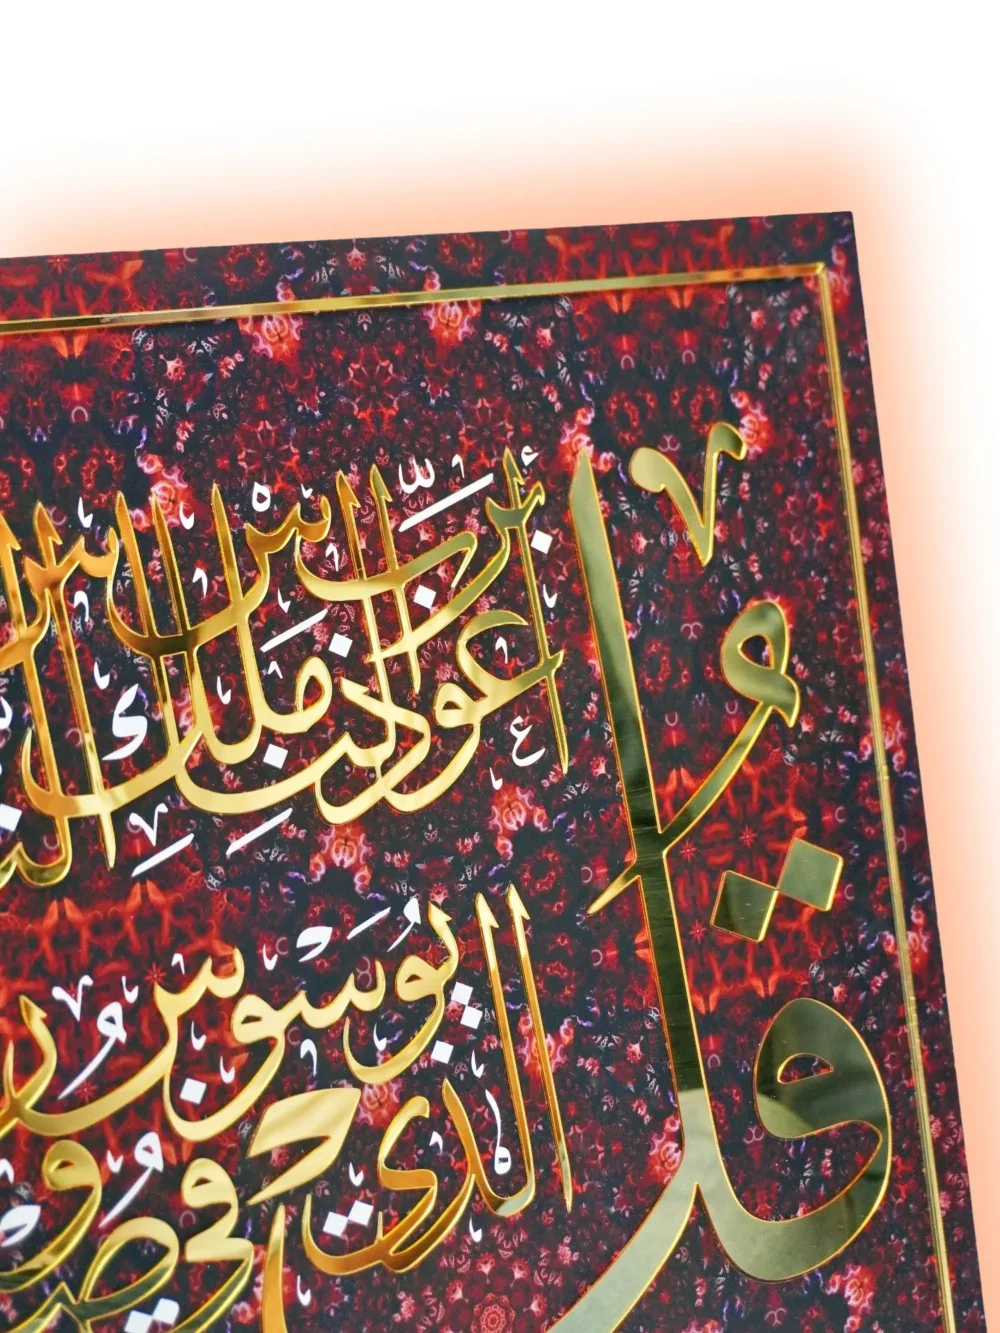 قُلْ
أَعُوذُ بِرَبِّ النَّاسِ مَلِكِ
الَّذِي يُوَسْوِسُ فِي